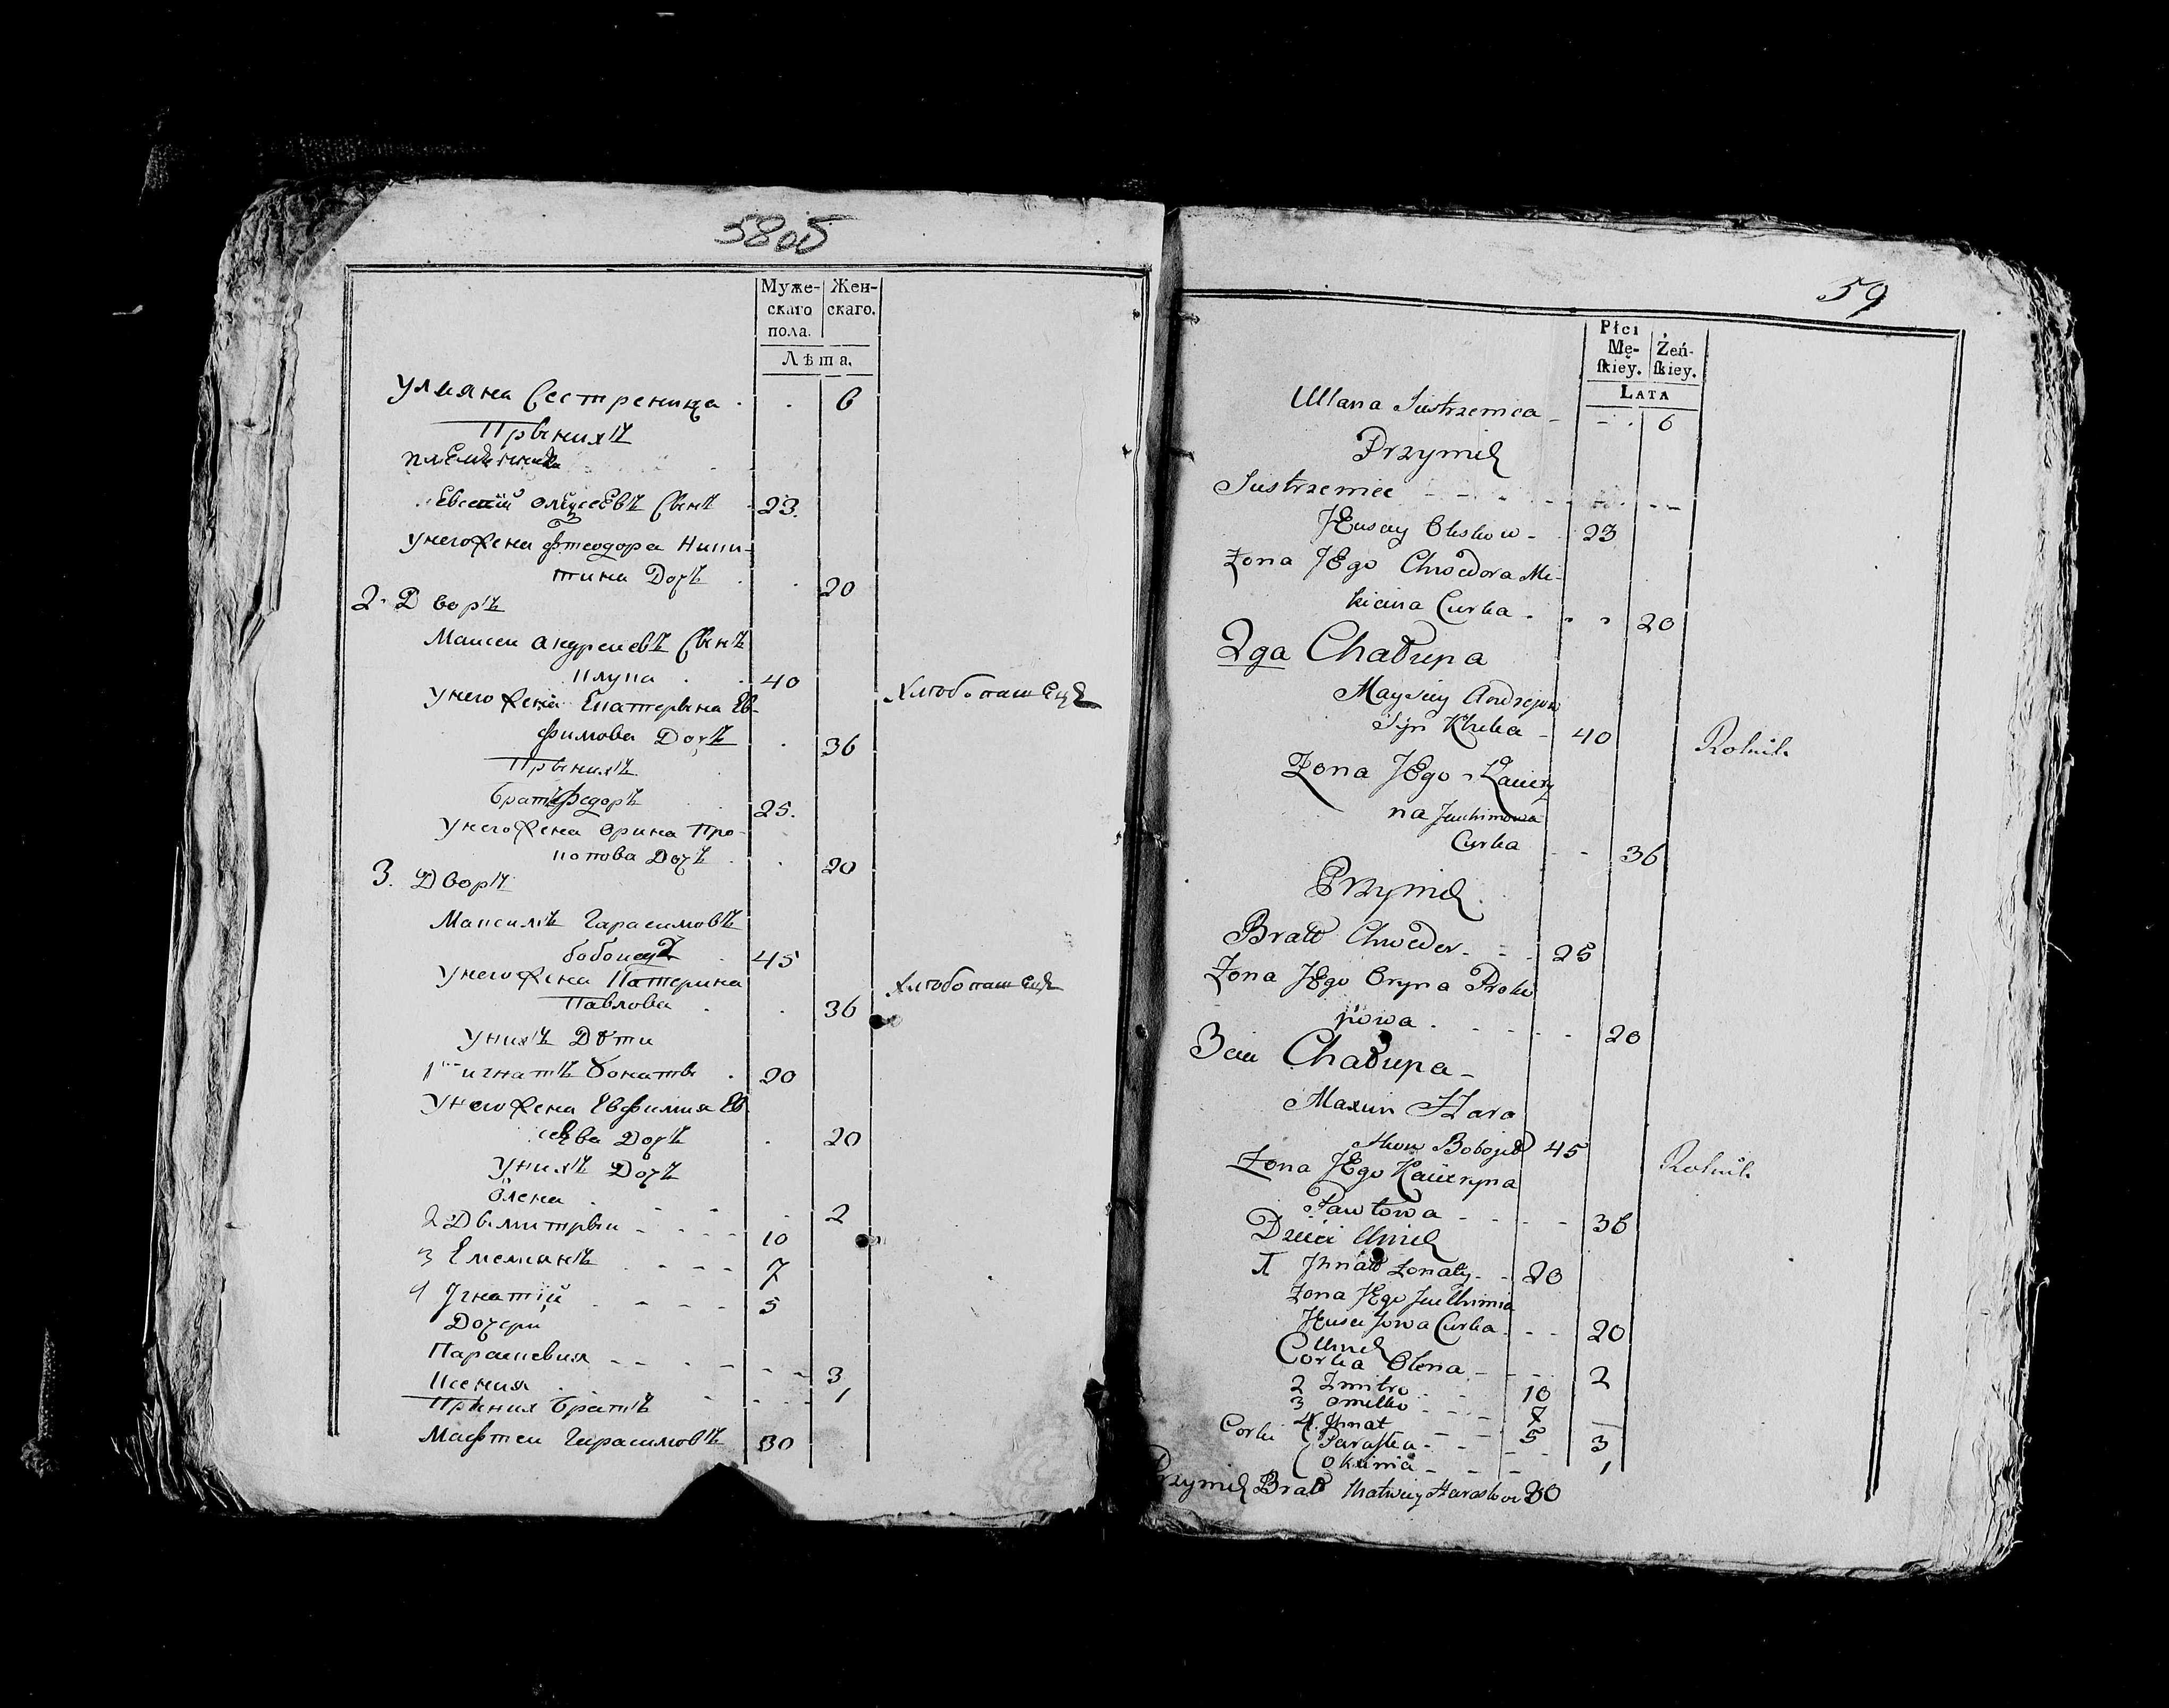 58об
Муже- Жен-
скаго скаго.
пола.
Лѣта.
Улияна Сестреница . . 6
При нихъ
племѣнникъ
Евсей Олисеевъ Синъ 23.
У него жена Фтеодора Ники-
тина Дочъ . . 20
2. Дворъ
Маисеи Андреievъ Синъ
Клупа . 40 Хлѣбопашецъ
У него жена Екатерина Ев-
фимова Дочъ . 36
При нихъ
братъ Федоръ 25.
У него жена Орина Про-
копова Дочъ . . 20
3. Дворъ
Максимъ Гарасимовъ
бабоедъ . 45
У него жена Катерина Хлѣбопашецъ
Павлова . . 36
У нихъ Дѣти
1 игнатъ Жонатъ . 20
У него жена Евфимия Ев-
сеева Дочъ . 20
У нихъ Дочъ
Олена . - - . 2
2 Димитрей - - - - 10
3 Емельянъ . - - - 7
4 Игнатий . - - - 5
Дочери
Параскевия - - . - - - 3
Ксения . - - - - 1
При нихъ братъ
Мафтеи Гарасимовъ 30
59
Płci
Mę- Żeń-
ſkiey. ſkiey.
LATA
Ullana Siestrzenica - - . 6
Przynich
Siestrzeniec - - - - - - -
Jewsey Oleskow - . 23
Zona Jego Chwedora Mi-
kicina Curka . . . 20
2ga Chałupa
Maysiey Andrejow
Syn Klupa - 40 Rolnik
Zona Jego Katery
na Jeuchimowa
Curka - - 36
Przynich
Bratt Chwedor . - . 25
Zona Jego Oryna Proko
powa . - - - - 20
3cia Chałupa -
Maxim Hara
simow Bobojed 45 Rolnik
Zona Jego Kateryna
Pawłowa - - - - 36
Dzieci Unich
1 Ihnatt Zonaty - - 20
Zona Jego Jeuchimia
Jewsiejowa Curka . - - 20
Unich
Corka Olena - - - - 2
2 Zmitro - - 10
3 Omelko - - - 7
4 Ihnat - - - 5
Corki Paraska - - - - 3
Oksinia - - - - 1
Przynich Bratt Matwiey Haraskow 30